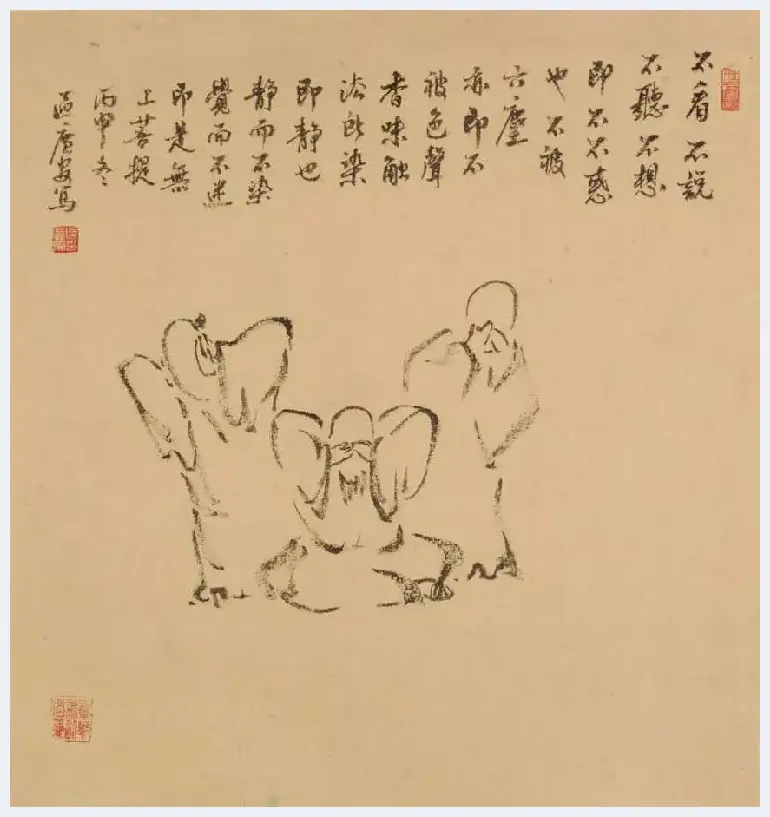 不看不説
不聽不想
即不不惑
也不被
六塵
亦即不
被色聲
香味触
法所染
即静也
静而不染
覺而不迷
即是無
上菩提
丙申冬
寫